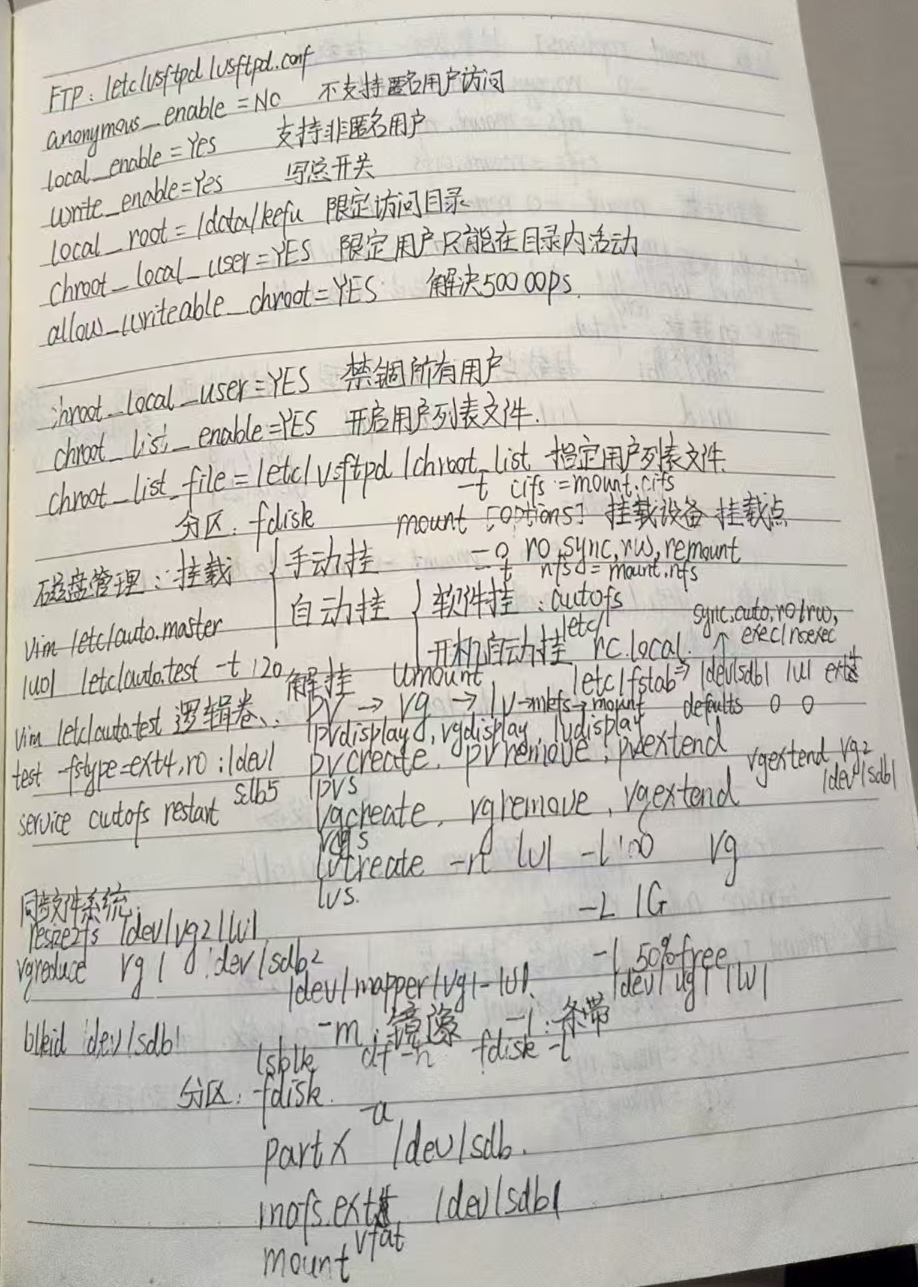 FTP: /etc/vsftpd/vsftpd.conf
anonymous_enable=NO 不支持匿名用户访问
local_enable=Yes 支持非匿名用户
write_enable=Yes 写总开关
local_root=/data/kefu 限定访问目录
chroot_local_user=YES 限定用户只能在目录内活动
allow_writeable_chroot=YES 解决500 OOPS.
chroot_local_user=YES 禁锢所有用户
chroot_list_enable=YES 开启用户列表文件.
chroot_list_file=/etc/vsftpd/chroot_list 指定用户列表文件
-t cifs=mount.cifs
分区: fdisk mount [options] 挂载设备 挂载点
-o ro,sync,rw,remount
磁盘管理: 挂载 手动挂 -t nfs=mount.nfs
自动挂 软件挂: autofs
vim /etc/auto.master 开机启动挂 /etc/rc.local. sync,auto,ro/rw, exec/noexec
/u01 /etc/auto.test -t 120 解挂 umount /etc/fstab⇒/dev/sdb1 /u1 ext4
defaults 0 0
vim /etc/auto.test 逻辑卷: pv → vg → lv→mkfs→mount
pvdisplay, vgdisplay, lvdisplay
test -fstype=ext4,ro :/dev/sdb5 pvcreate, pvremove, pvextend
pvs vgextend vg2 /dev/sdb1
service autofs restart vgcreate, vgremove, vgextend
vgs
lvcreate -n lv1 -l 100 vg
lvs. -L 1G
同步文件系统:
resize2fs /dev/vg2/lv1
vgreduce vg1 /dev/sdb2 -l 50%free
/dev/mapper/vg1-lv1. /dev/vg1/lv1
-m: 镜像 -i: 条带
blkid /dev/sdb1 lsblk df -h fdisk -l
分区: fdisk.
-a
partx /dev/sdb.
mkfs.ext4 /dev/sdb1
vfat
mount